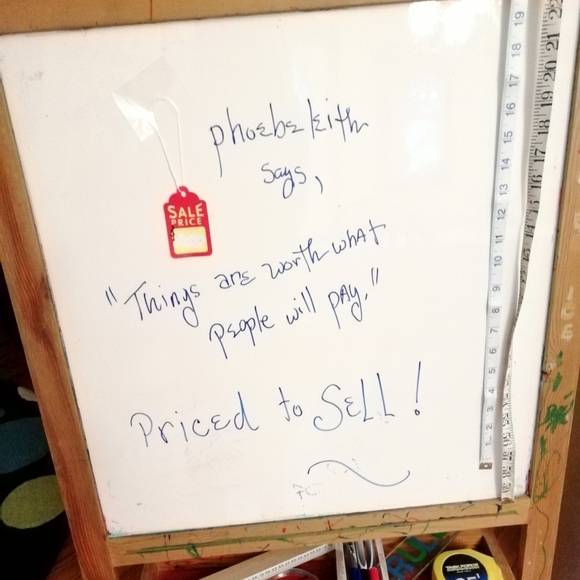 phoebe keith
says,
SALE
PRICE
"Things are worth what
people will pay."
Priced to SELL!
19
18
17
16
15
14
13
12
11
10
9
8
7
6
5
4
3
2
1
22
21
20
19
18
17
16
TASK FORCE
25'